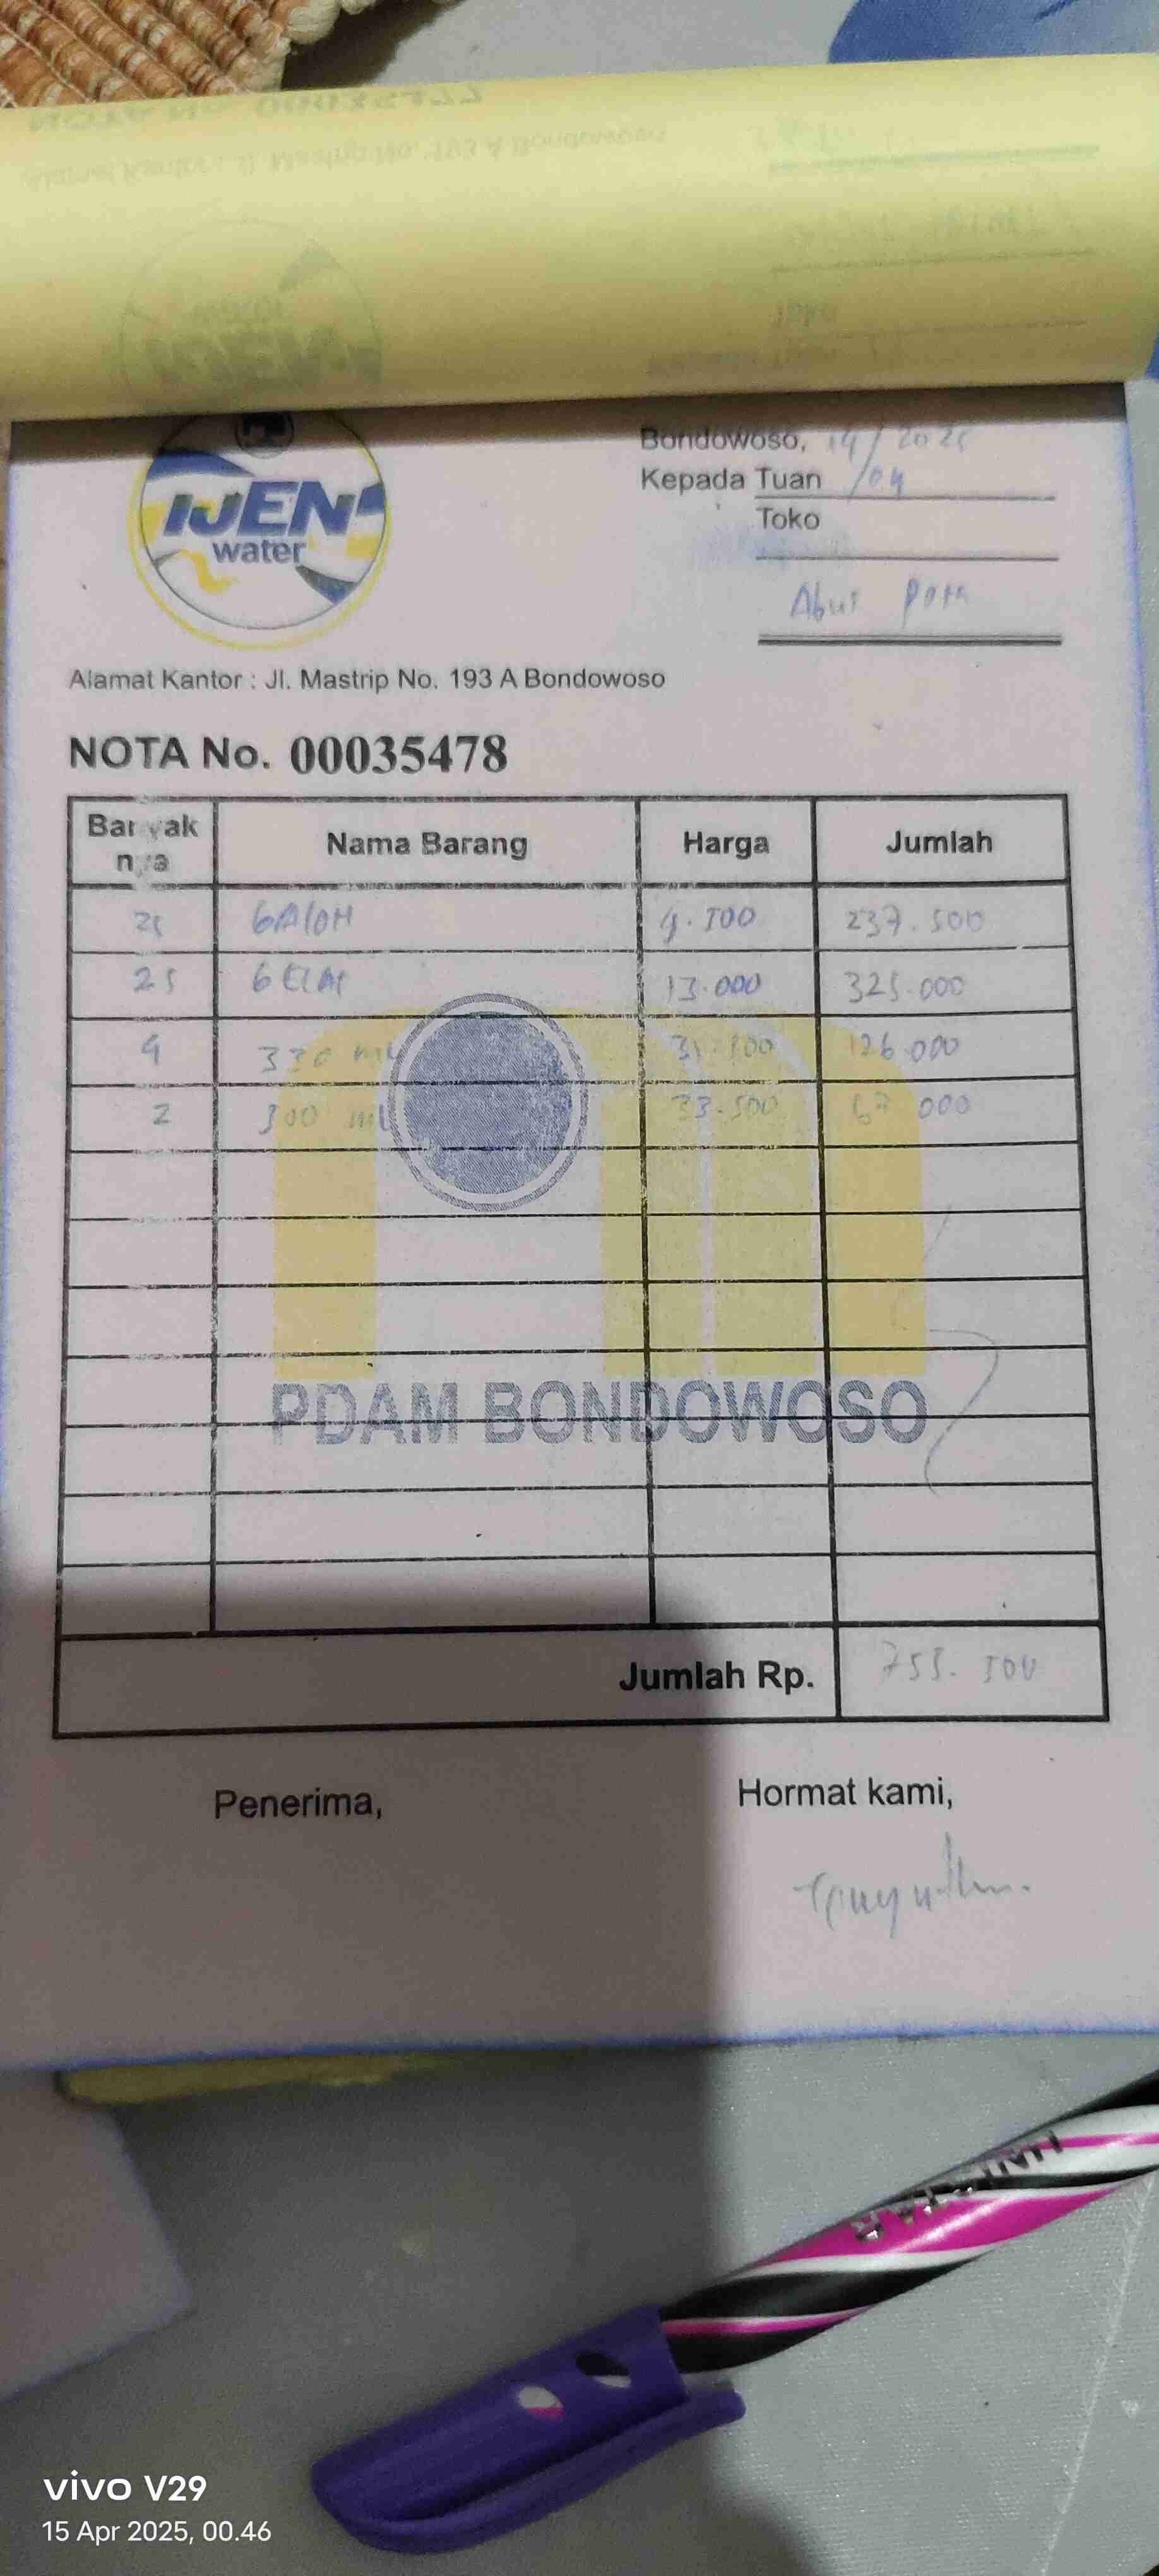 IJEN
water
Bondowoso, 14/04/2025
Kepada Tuan
Toko
Alamat Kantor : Jl. Mastrip No. 193 A Bondowoso
NOTA No. 00035478
Banyak nya Nama Barang Harga Jumlah
25 GAlON 9.500 237.500
25 GElAS 13.000 325.000
4 330 ml 31.500 126.000
2 ml 33.500 67.000
PDAM BONDOWOSO
Jumlah Rp. 755.500
Penerima, Hormat kami,
UNISTAR
vivo V29
15 Apr 2025, 00.46